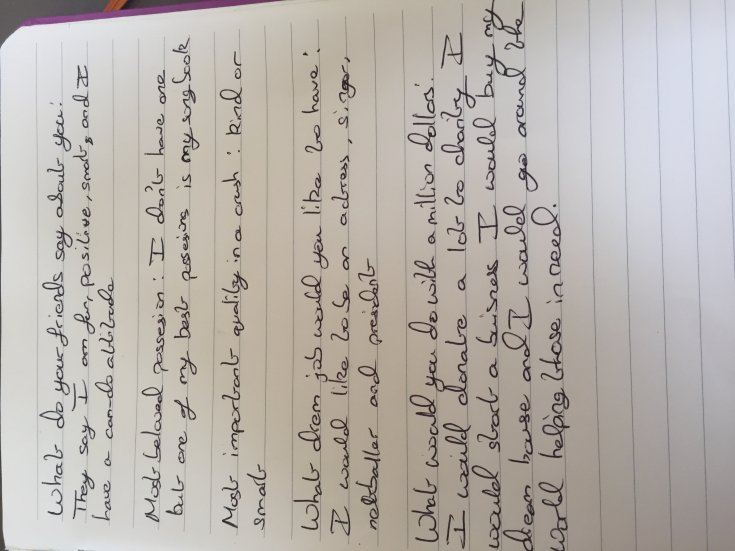 What do your friends say about you:
They say I am fun, positive, smart, and I
have a can-do attitude
Most beloved possesion: I don't have one
but one of my best possesions is my song book
Most important quality in a crush: Kind or
smart
What dream job would you like to have:
I would like to be an actress, singer,
netballer and president
What would you do with a million dollars:
I would donate a lot to charity I
would start a buisness I would buy my
dream house and I would go around the
world helping those in need.